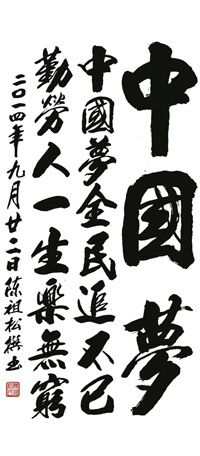 中國夢
中國夢全民追不已
勤勞人一生樂無窮
二〇一四年九月廿二日陈祖松撰书